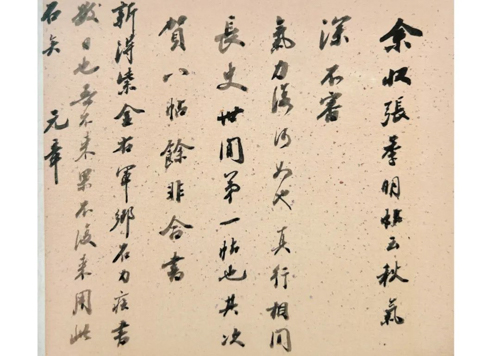 余収張季明帖云秋氣
深不審
氣力復何如也真行相間
長史世間第一帖也其次
賀八帖餘非合書
新得紫金右軍鄉石力疾書
數日也吾不来果不復来用此
石矣 元章